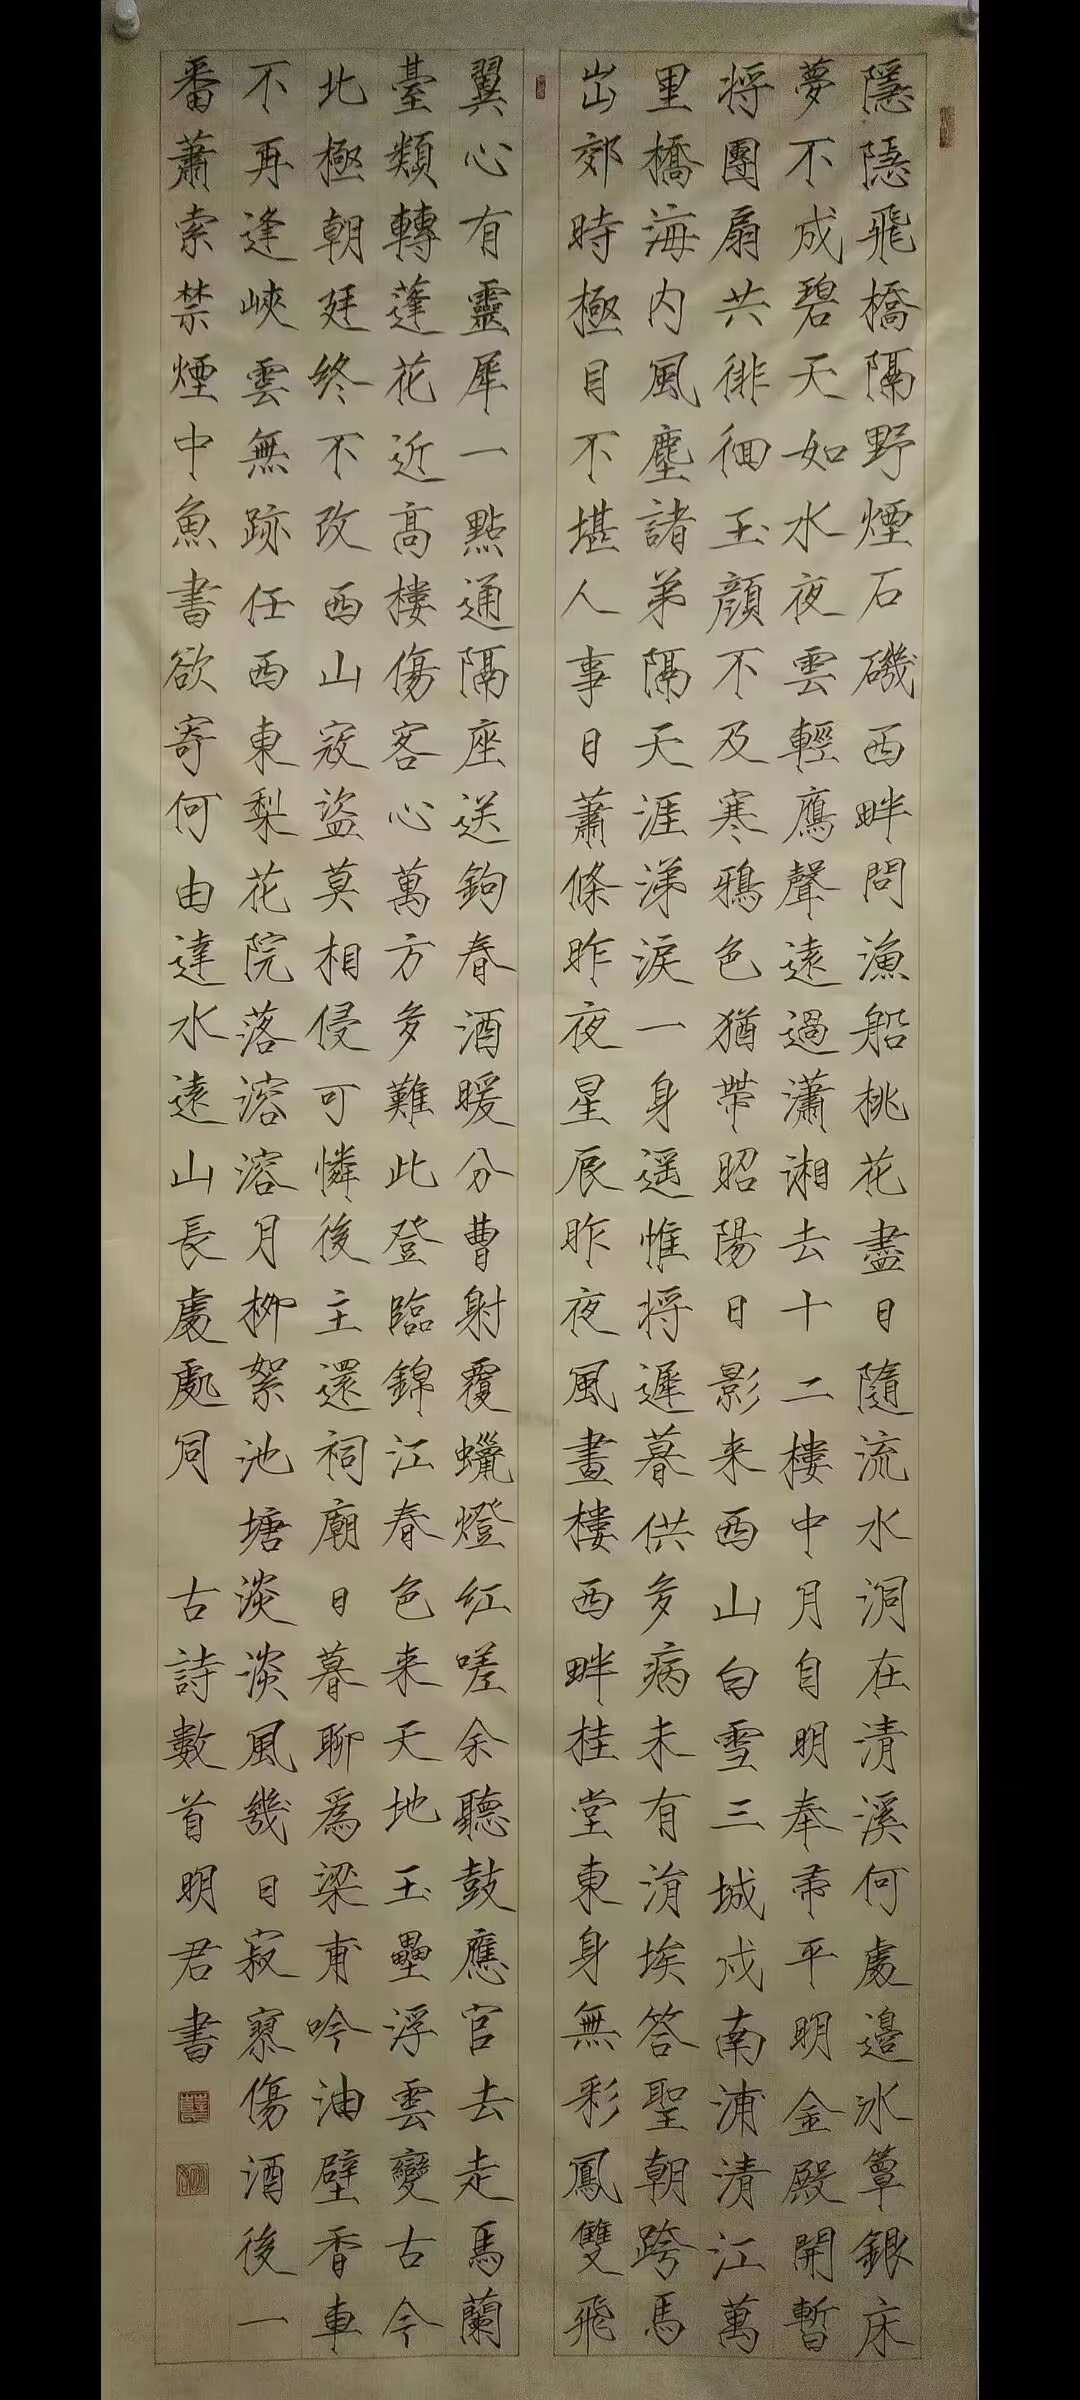 隱隱飛橋隔野煙石磯西畔問漁船桃花盡日隨流水洞在清溪何處邊冰簟銀床
夢不成碧天如水夜雲輕鴈聲遠過瀟湘去十二樓中月自明奉帚平明金殿開暫
將團扇共徘徊玉顏不及寒鴉色猶帶昭陽日影来西山白雪三城戍南浦清江萬
里橋海内風塵諸弟隔天涯涕淚一身遥惟將遲暮供多病未有涓埃答聖朝跨馬
出郊時極目不堪人事日蕭條昨夜星辰昨夜風畫樓西畔桂堂東身無彩鳳雙飛
翼心有靈犀一點通隔座送鉤春酒暖分曹射覆蠟燈紅嗟余聽鼓應官去走馬蘭
臺類轉蓬花近高樓傷客心萬方多難此登臨錦江春色来天地玉壘浮雲變古今
北極朝廷終不改西山寇盜莫相侵可憐後主還祠廟日暮聊爲梁甫吟油壁香車
不再逢峽雲無跡任西東梨花院落溶溶月柳絮池塘淡淡風幾日寂寥傷酒後一
番蕭索禁煙中魚書欲寄何由達水遠山長處處同 古詩數首明君書